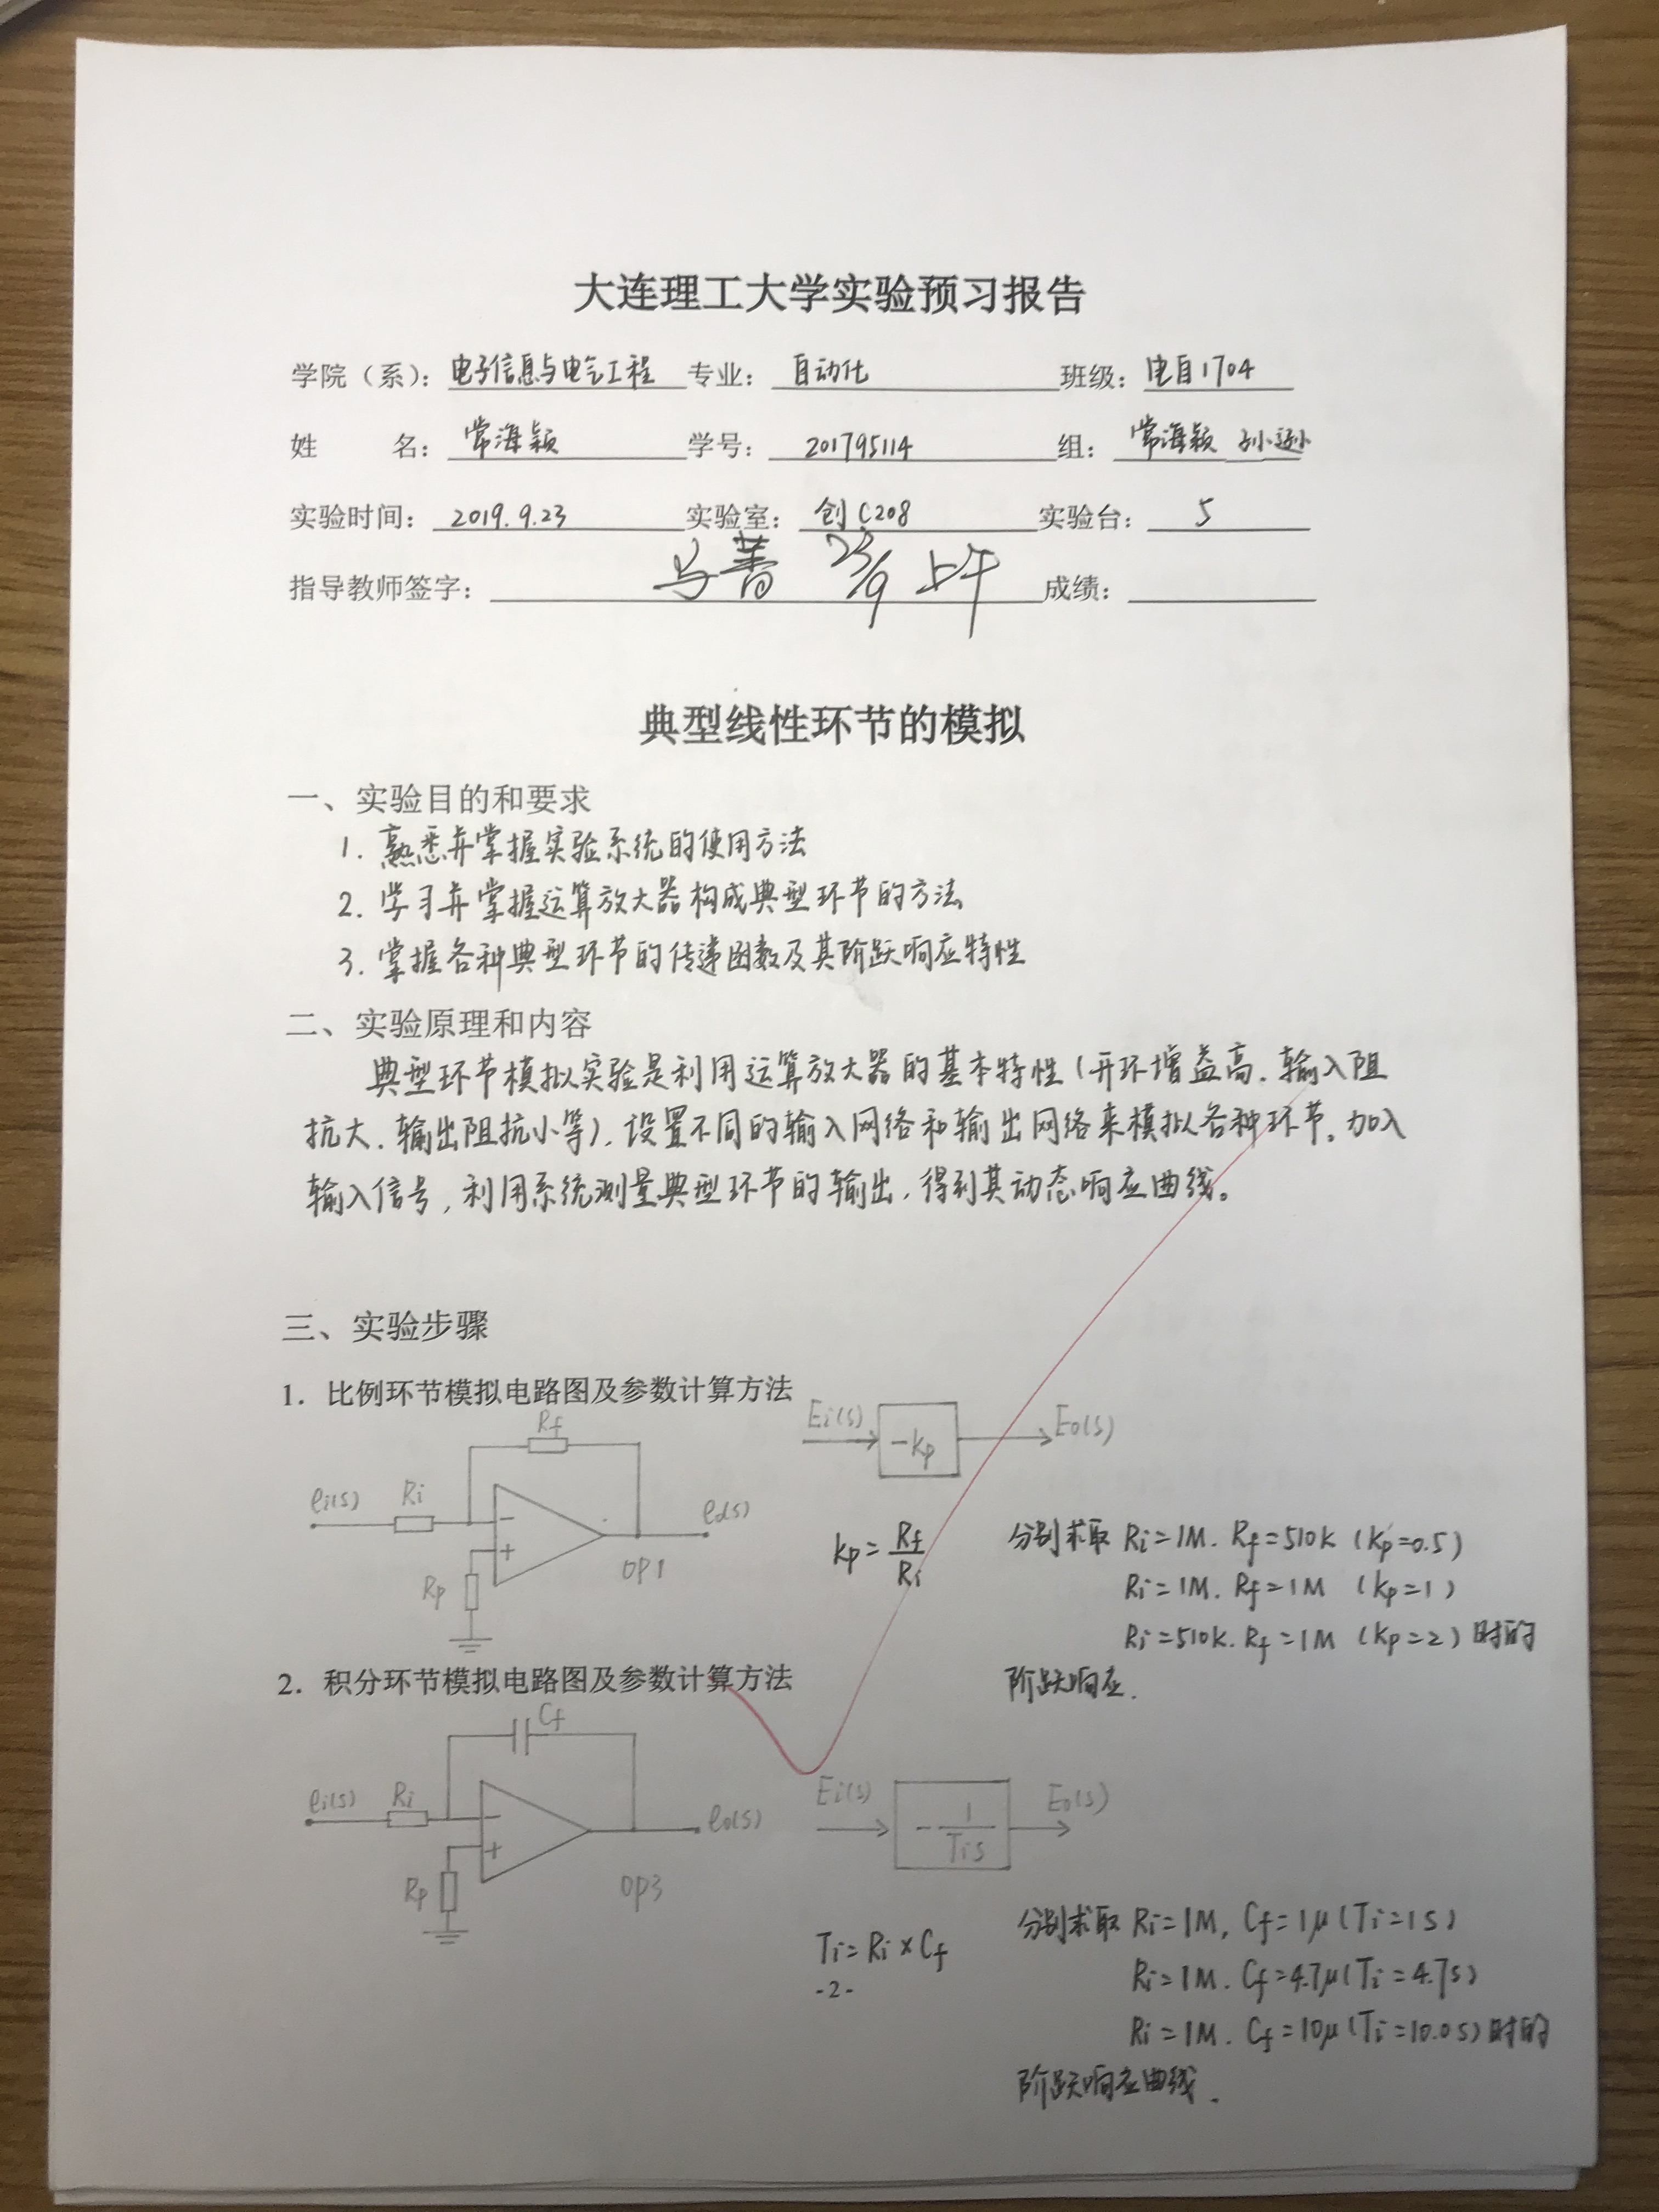 大连理工大学实验预习报告
学院（系）：电子信息与电气工程 专业：自动化 班级：电自1704
姓 名：常海颖 学号：201795114 组：常海颖 孙逊
实验时间：2019.9.23 实验室：创C208 实验台：5
指导教师签字：马菁 23/9 上午 成绩：
典型线性环节的模拟
一、实验目的和要求
1. 熟悉并掌握实验系统的使用方法
2. 学习并掌握运算放大器构成典型环节的方法
3. 掌握各种典型环节的传递函数及其阶跃响应特性
二、实验原理和内容
典型环节模拟实验是利用运算放大器的基本特性(开环增益高、输入阻
抗大、输出阻抗小等)，设置不同的输入网络和输出网络来模拟各种环节。加入
输入信号，利用系统测量典型环节的输出，得到其动态响应曲线。
三、实验步骤
1. 比例环节模拟电路图及参数计算方法
Rf
ei(s) Ri - + eo(s)
Rp OP1
Ei(s) -Kp Eo(s)
Kp=Rf/Ri
分别求取 Ri=1M. Rf=510K (Kp=0.5)
Ri=1M. Rf=1M (Kp=1)
Ri=510K. Rf=1M (Kp=2) 时的
阶跃响应.
2. 积分环节模拟电路图及参数计算方法
Cf
ei(s) Ri - + eo(s)
Rp OP3
Ei(s) -1/Tis Eo(s)
Ti=Ri×Cf
分别求取 Ri=1M, Cf=1μ(Ti=1s)
Ri=1M. Cf=4.7μ(Ti=4.7s)
Ri=1M. Cf=10μ(Ti=10.0s) 时的
阶跃响应曲线.
-2-